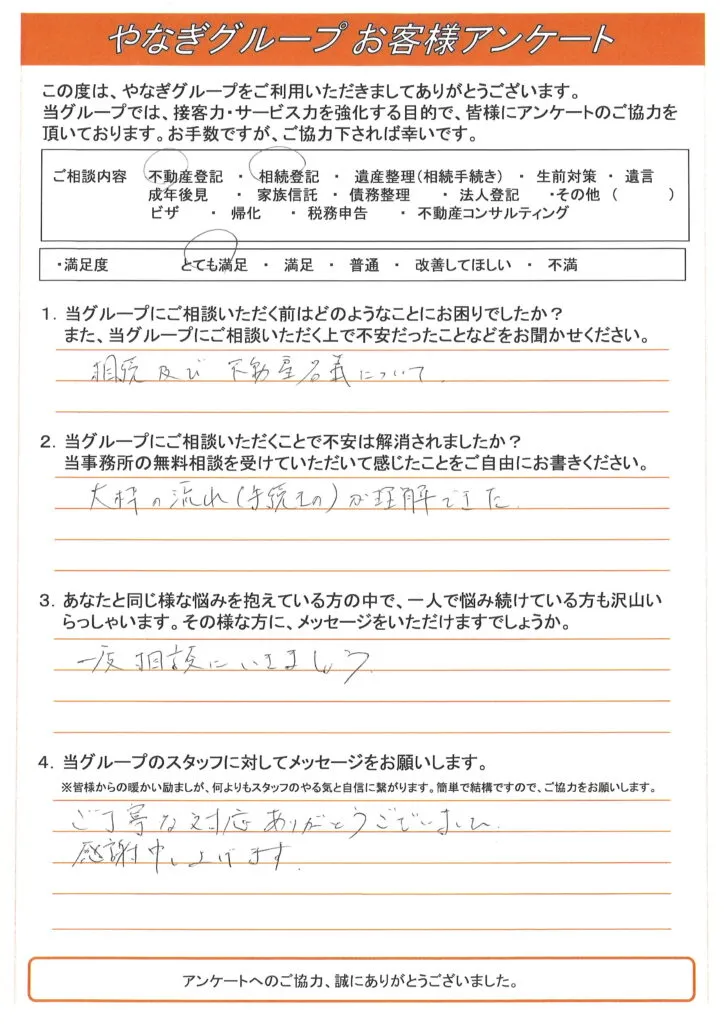 やなぎグループ お客様アンケート
この度は、やなぎグループをご利用いただきましてありがとうございます。
当グループでは、接客力・サービス力を強化する目的で、皆様にアンケートのご協力を
頂いております。お手数ですが、ご協力下されば幸いです。
ご相談内容 不動産登記 ・ 相続登記 ・ 遺産整理(相続手続き) ・ 生前対策 ・ 遺言
成年後見 ・ 家族信託 ・ 債務整理 ・ 法人登記 ・その他 ( )
ビザ ・ 帰化 ・ 税務申告 ・ 不動産コンサルティング
・満足度 とても満足 ・ 満足 ・ 普通 ・ 改善してほしい ・ 不満
1. 当グループにご相談いただく前はどのようなことにお困りでしたか?
また、当グループにご相談いただく上で不安だったことなどをお聞かせください。
相続及び 不動産名義について.
2. 当グループにご相談いただくことで不安は解消されましたか?
当事務所の無料相談を受けていただいて感じたことをご自由にお書きください。
大枠の流れ(手続きの)が理解できた.
3. あなたと同じ様な悩みを抱えている方の中で、一人で悩み続けている方も沢山い
らっしゃいます。その様な方に、メッセージをいただけますでしょうか。
一度相談にいきましょう
4. 当グループのスタッフに対してメッセージをお願いします。
※皆様からの暖かい励ましが、何よりもスタッフのやる気と自信に繋がります。簡単で結構ですので、ご協力をお願いします。
ご丁寧な対応ありがとうございました.
感謝申し上げます.
アンケートへのご協力、誠にありがとうございました。